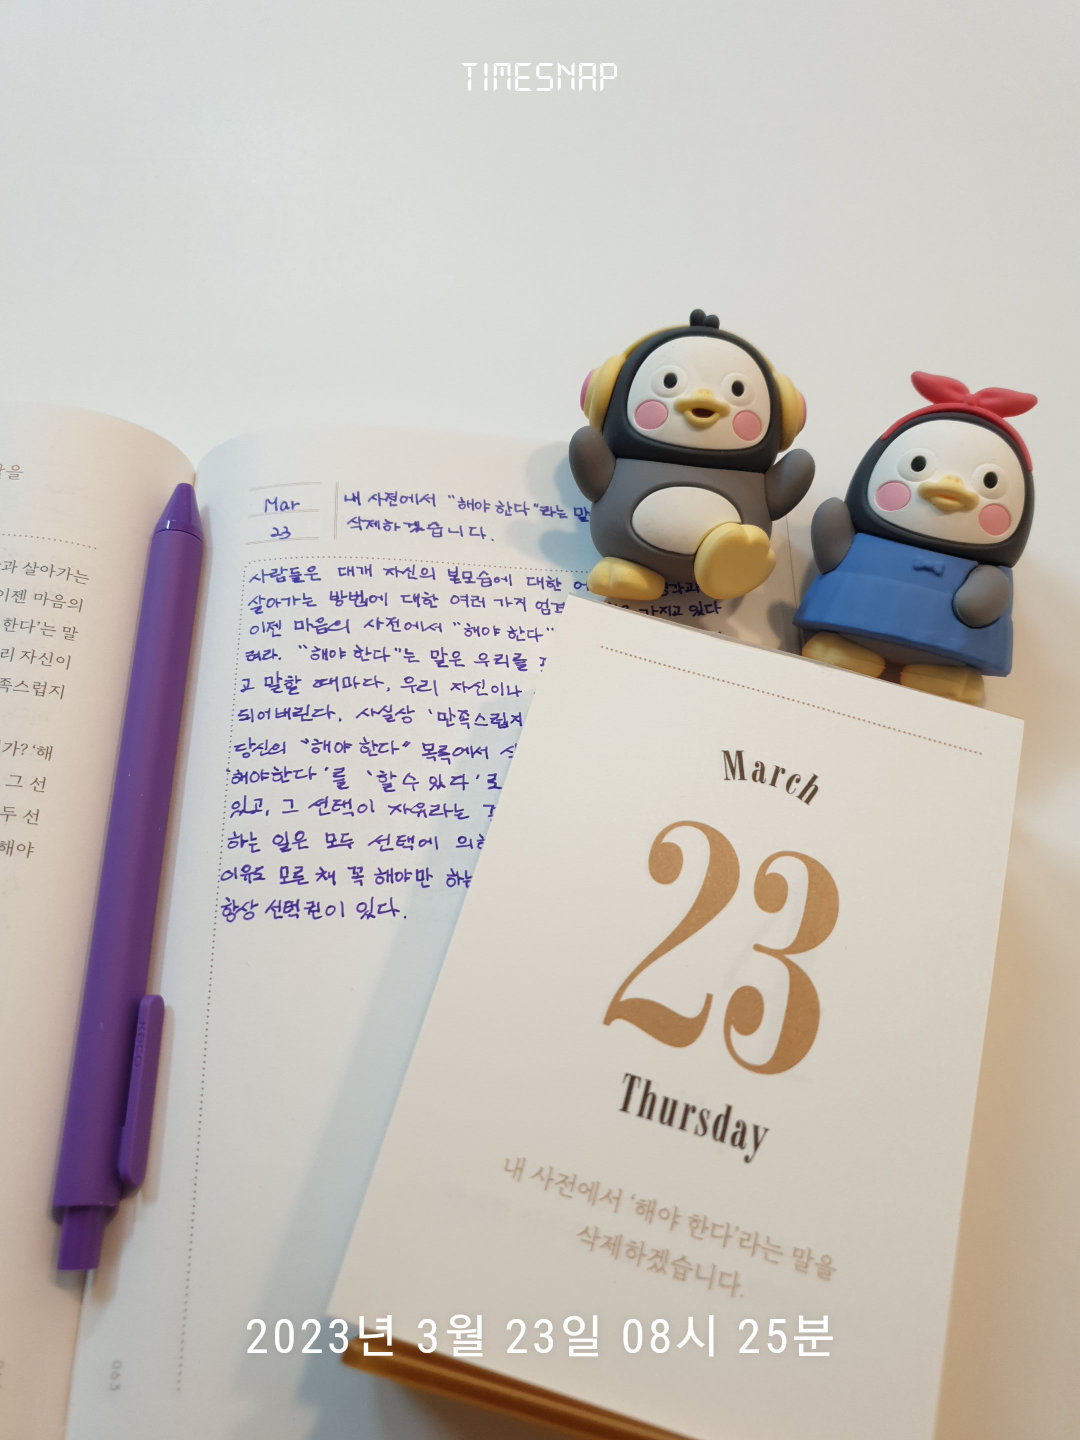 TIMESNAP
을
과 살아가는
이젠 마음의
한다'는 말
리 자신이
족스럽지
가? '해
그 선
두 선
해야
Mar
23
내 사전에서 "해야 한다"라는 말
삭제하겠습니다.
사람들은 대개 자신의 본모습에 대한
살아가는 방법에 대한 여러 가지 엄격 가지고 있다
이젠 마음의 사전에서 "해야 한다"
하라. "해야 한다"는 말은 우리를
고 말할 때마다, 우리 자신이나
되어버린다. 사실상 '만족스럽지
당신의 "해야 한다" 목록에서
'해야한다'를 '할 수 있다'로
있고, 그 선택이 자유라는
하는 일은 모두 선택에 의해
이유도 모른 채 꼭 해야만 하는
항상 선택권이 있다.
KACO
063
March
23
Thursday
내 사전에서 '해야 한다'라는 말을
삭제하겠습니다.
2023년 3월 23일 08시 25분